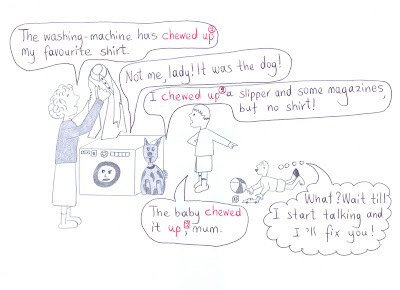 The washing-machine has chewed up
my favourite shirt.
Not me, lady! It was the dog!
I chewed up a slipper and some magazines,
but no shirt!
The baby chewed
it up, mum.
What? Wait till
I start talking and
I'll fix you!